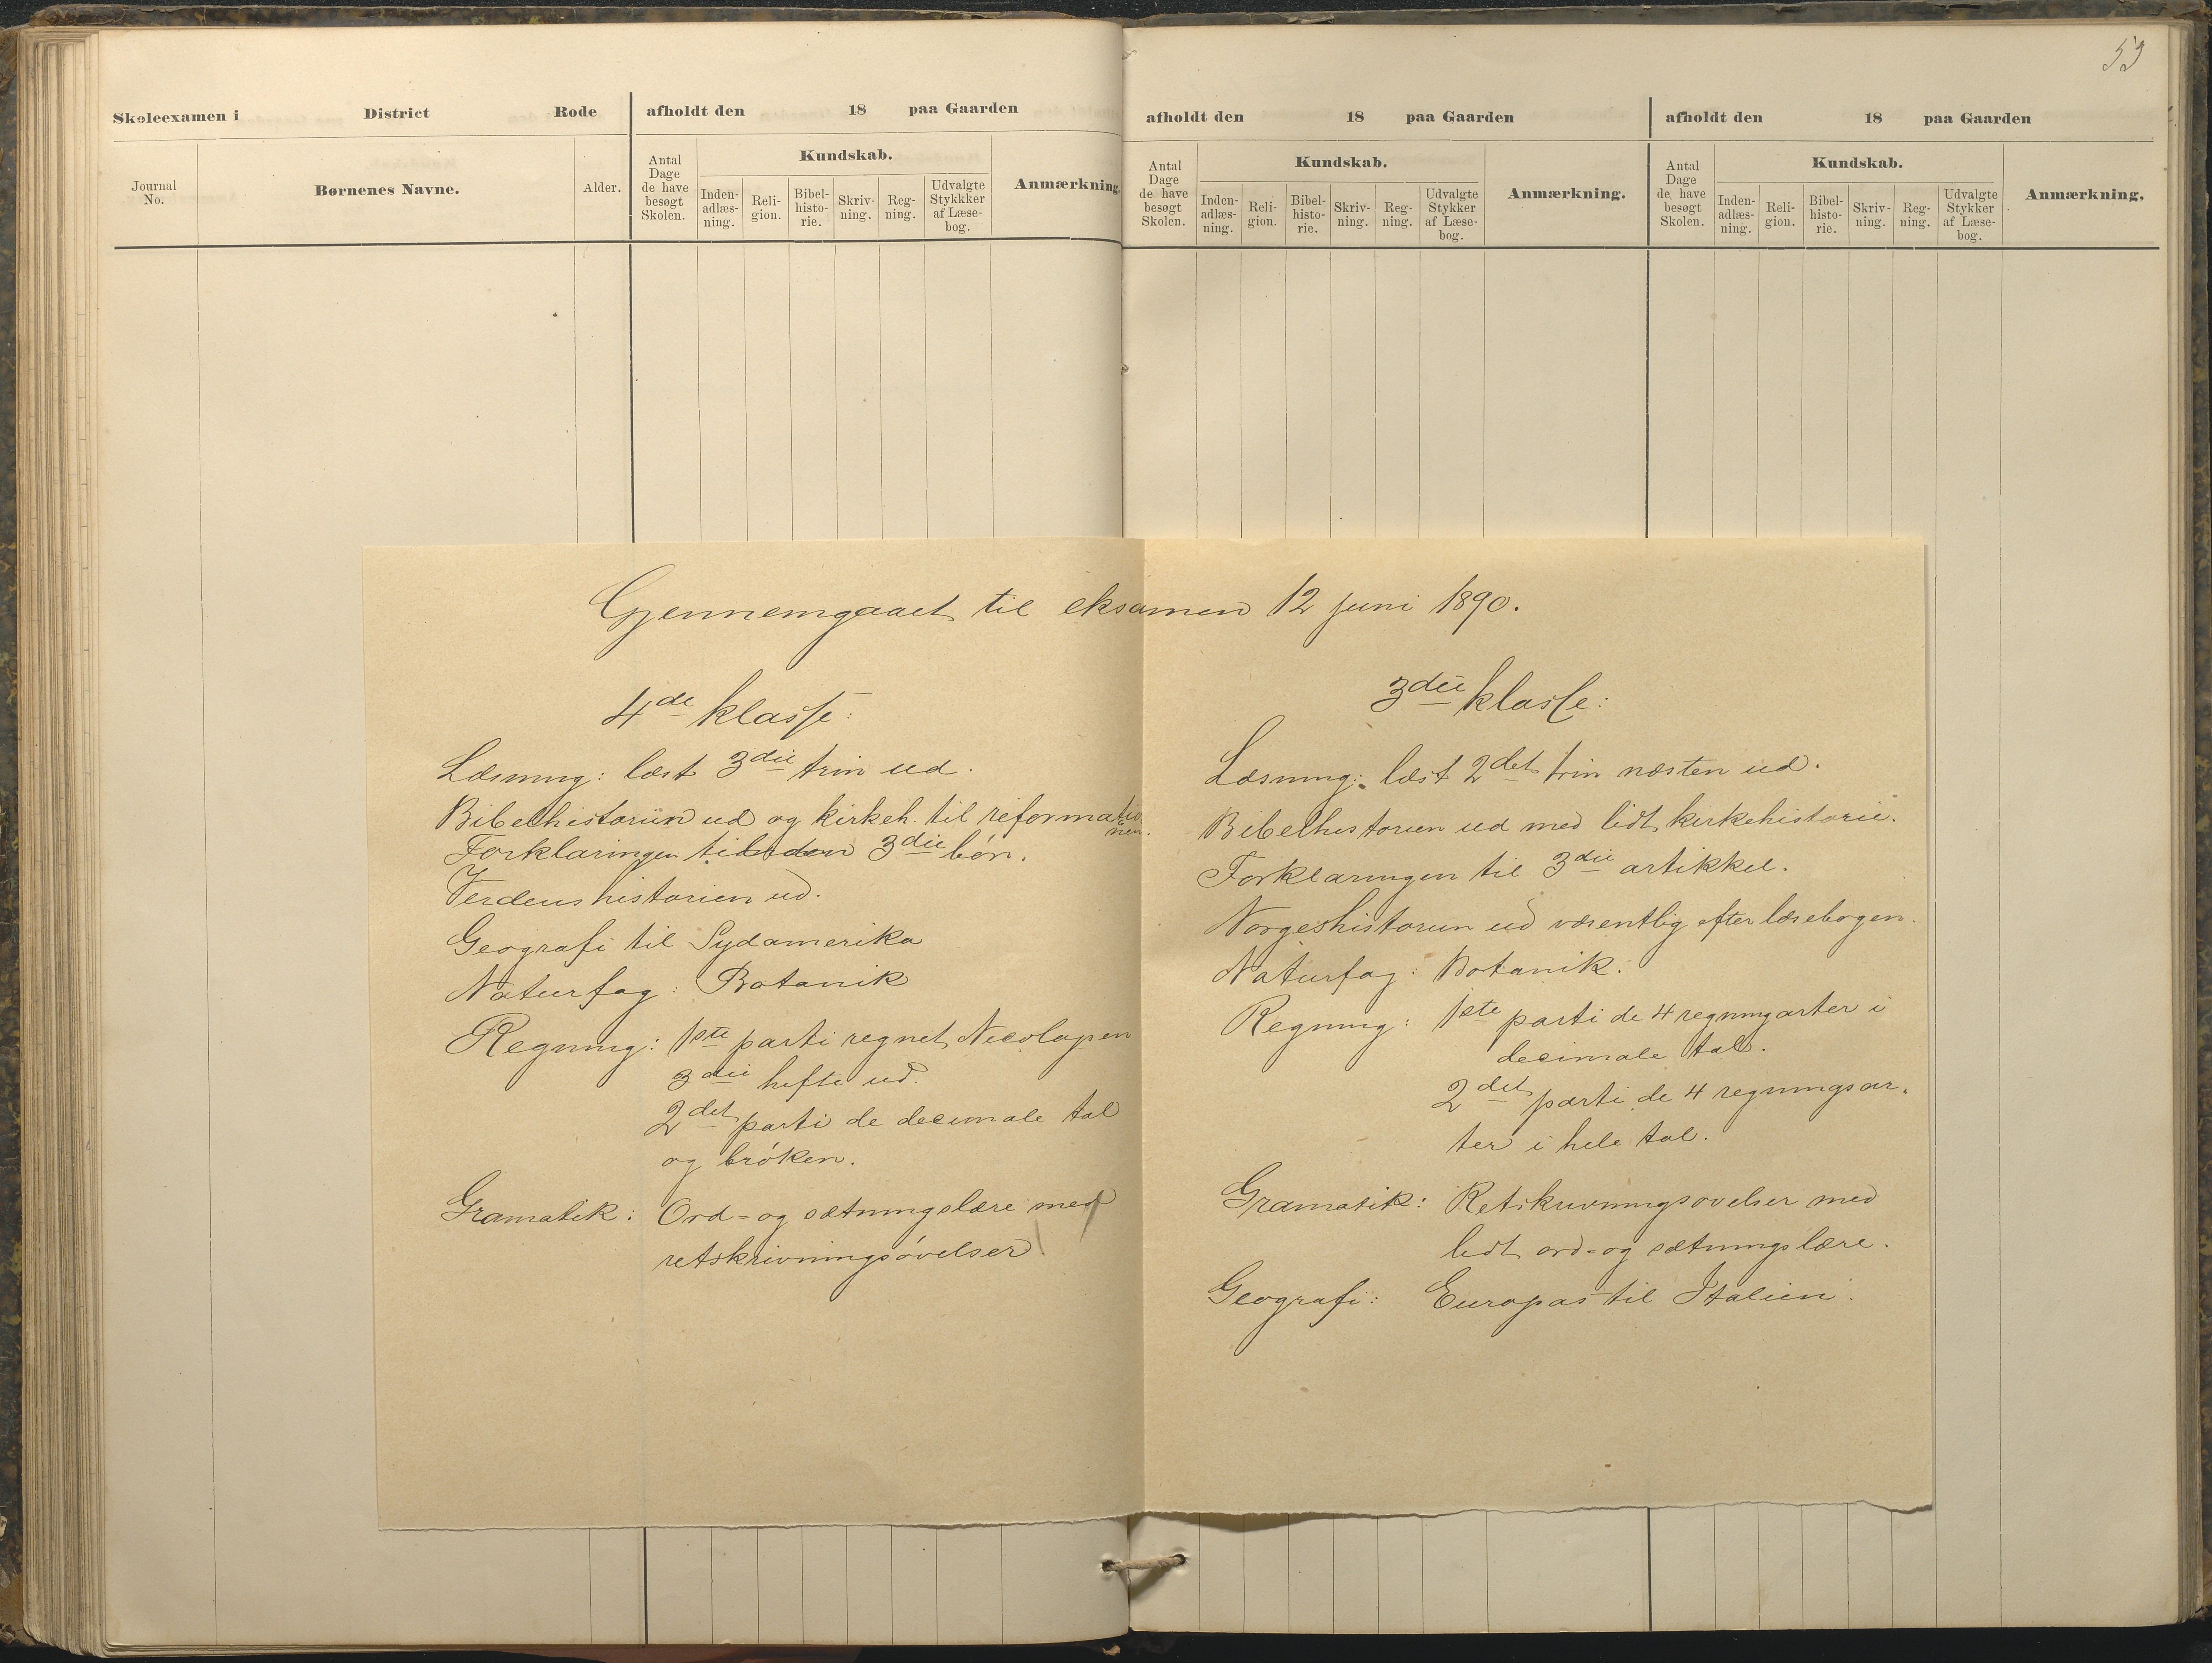 53
Skoleexamen i District Rode afholdt den 18 paa Gaarden
Journal No. Børnenes Navne. Alder. Antal Dage de have besøgt Skolen. Kundskab. Anmærkning.
Inden-adlæs-ning. Reli-gion. Bibel-histo-rie. Skriv-ning. Reg-ning. Udvalgte Stykkker af Læse-bog.
afholdt den 18 paa Gaarden
Antal Dage de have besøgt Skolen. Kundskab. Anmærkning.
Inden-adlæs-ning. Reli-gion. Bibel-histo-rie. Skriv-ning. Reg-ning. Udvalgte Stykker af Læse-bog.
afholdt den 18 paa Gaarden
Antal Dage de have besøgt Skolen. Kundskab. Anmærkning.
Inden-adlæs-ning. Reli-gion. Bibel-histo-rie. Skriv-ning. Reg-ning. Udvalgte Stykker af Læse-bog.
Gjennemgaaet til eksamen 12 juni 1890.
4de klasse:
Læsning: læst 3die trin ud.
Bibelhistorien ud og kirkeh. til reformatio
nen.
Forklaringen til den 3die bøn.
Verdenshistorien ud.
Geografi til Sydamerika
Naturfag: Botanik
Regning: 1ste parti regnet Nicolaysen
3die hefte ud.
2det parti de decimale tal
og brøken.
Gramatik: Ord- og sætningslære med
retskrivningsøvelser
3die klasse:
Læsning: læst 2det trin næsten ud.
Bibelhistorien ud med lidt kirkehistorie.
Forklaringen til 3die artikkel.
Norgeshistorien ud væsentlig efter læsebogen.
Naturfag: Botanik.
Regning: 1ste parti de 4 regningarter i
decimale tal.
2det parti de 4 regningsar-
ter i hele tal.
Gramatik: Retskrivningsøvelser med
lidt ord- og sætningslære.
Geografi: Europas til Italien.